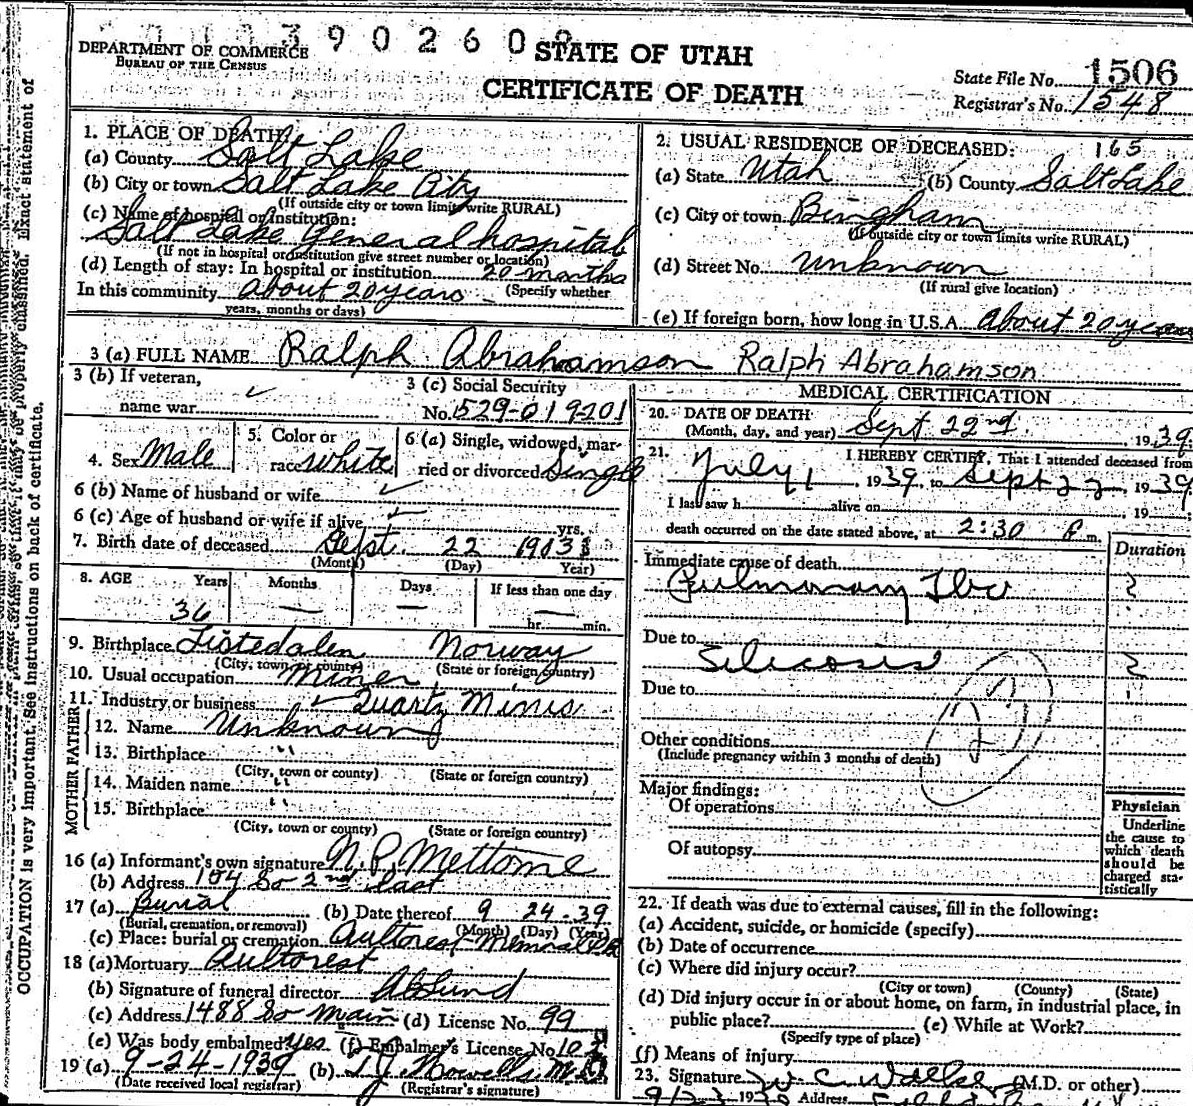 DEPARTMENT OF COMMERCE
BUREAU OF THE CENSUS
3902608
STATE OF UTAH
CERTIFICATE OF DEATH
State File No. 1506
Registrar's No. 1548
1. PLACE OF DEATH:
(a) County Salt Lake
(b) City or town Salt Lake City
(If outside city or town limits write RURAL)
(c) Name of hospital or institution:
Salt Lake General hospital
(If not in hospital or institution give street number or location)
(d) Length of stay: In hospital or institution 20 months
In this community about 20 years (Specify whether
years, months or days)
2. USUAL RESIDENCE OF DECEASED: 165
(a) State Utah (b) County Salt Lake
(c) City or town Bingham
(If outside city or town limits write RURAL)
(d) Street No. Unknown
(If rural give location)
(e) If foreign born, how long in U.S.A. About 20 years
3 (a) FULL NAME Ralph Abrahamson Ralph Abrahamson
3 (b) If veteran,
name war
3 (c) Social Security
No. 529-01-9201
4. Sex Male
5. Color or
race white
6 (a) Single, widowed, mar-
ried or divorced Single
6 (b) Name of husband or wife
6 (c) Age of husband or wife if alive yrs.
7. Birth date of deceased Sept. 22 1903
(Month) (Day) Year)
8. AGE Years Months Days If less than one day
36 — — —
hr. min.
9. Birthplace Listedalen Norway
(City, town or county) (State or foreign country)
10. Usual occupation Miner
11. Industry or business Quartz Mines
FATHER
12. Name Unknown
13. Birthplace "
(City, town or county) (State or foreign country)
MOTHER
14. Maiden name "
15. Birthplace "
(City, town or county) (State or foreign country)
16 (a) Informant's own signature N. P. Mettome
(b) Address 104 So 2nd East
17 (a) Burial (b) Date thereof 9 24-39
(Burial, cremation, or removal) (Month) (Day) (Year)
(c) Place: burial or cremation Aultorest Memorial Pk
18 (a) Mortuary Aultorest
(b) Signature of funeral director
(c) Address 1488 So Main (d) License No. 99
(e) Was body embalmed yes (f) Embalmer's License No.
19 (a) 9-24-1939 (b) T.J. Howells M.D.
(Date received local registrar) (Registrar's signature)
MEDICAL CERTIFICATION
20. DATE OF DEATH
(Month, day, and year) Sept 22nd 1939
21. I HEREBY CERTIFY, That I attended deceased from
July 1, 1939, to Sept 22 1939
I last saw h alive on , 19
death occurred on the date stated above, at 2:30 P m.
Duration
Immediate cause of death
Pulmonary Tbc ?
Due to
Silicosis ?
Due to
Other conditions
(Include pregnancy within 3 months of death)
Major findings:
Of operations
Of autopsy
Physician
Underline
the cause to
which death
should be
charged sta-
tistically
22. If death was due to external causes, fill in the following:
(a) Accident, suicide, or homicide (specify)
(b) Date of occurrence
(c) Where did injury occur?
(City or town) (County) (State)
(d) Did injury occur in or about home, on farm, in industrial place, in
public place? (e) While at Work?
(Specify type of place)
(f) Means of injury
23. Signature (M.D. or other)
Address
OCCUPATION is very important. See instructions on back of certificate.
properly classified. Exact statement of